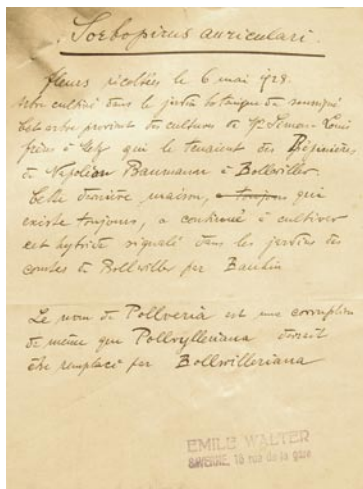 Sorbopirus auriculari.
fleurs récoltées le 6 mai 1928.
Arbre cultivé dans le jardin botanique de
Cet arbre provient des cultures de Mrs Simon-Louis
frères à Metz qui le tenaient des Pépinières
de Napoléon Baumann à Bollwiller.
Cette dernière maison, toujours qui
existe toujours, a continué à cultiver
cet hybride signalé dans les jardins des
comtes de Bollwiller par Bauhin
Le nom de Pollveria est une corruption
de même que Pollvylleriana devrait
être remplacé par Bollwilleriana
EMILE WALTER
SAVERNE, 16 rue de la gare